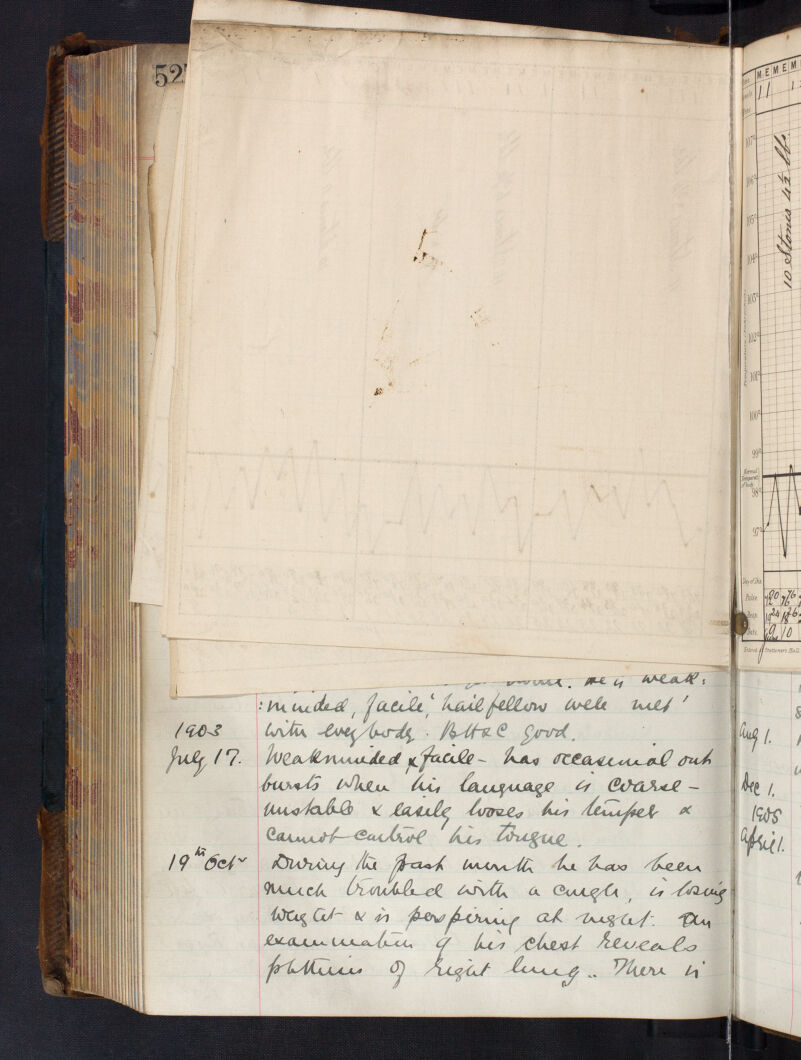 52
He is weak:
:minded, facile, 'hail fellow well met'
1903
with everybody. B H & C good.
July 17. Weakminded & facile - has occasional out
bursts when his language is coarse -
unstable & easily looses his temper &
cannot control his tongue.
19th Octr During the past month he has been
much troubled with a cough, is losing
weight & is perspiring at night. An
examination of his chest reveals
phthisis of right lung.. There is
M E M E M
11
10 Stones 4½ lb
107°
106°
105°
104°
103°
102°
101°
100°
99°
Normal
Temperature
of Body
98°
97°
Day of Dis.
Pulse
Resp.
Date
9 10
Stationers Hall
Aug 1.
Dec 1.
1905
April 1.